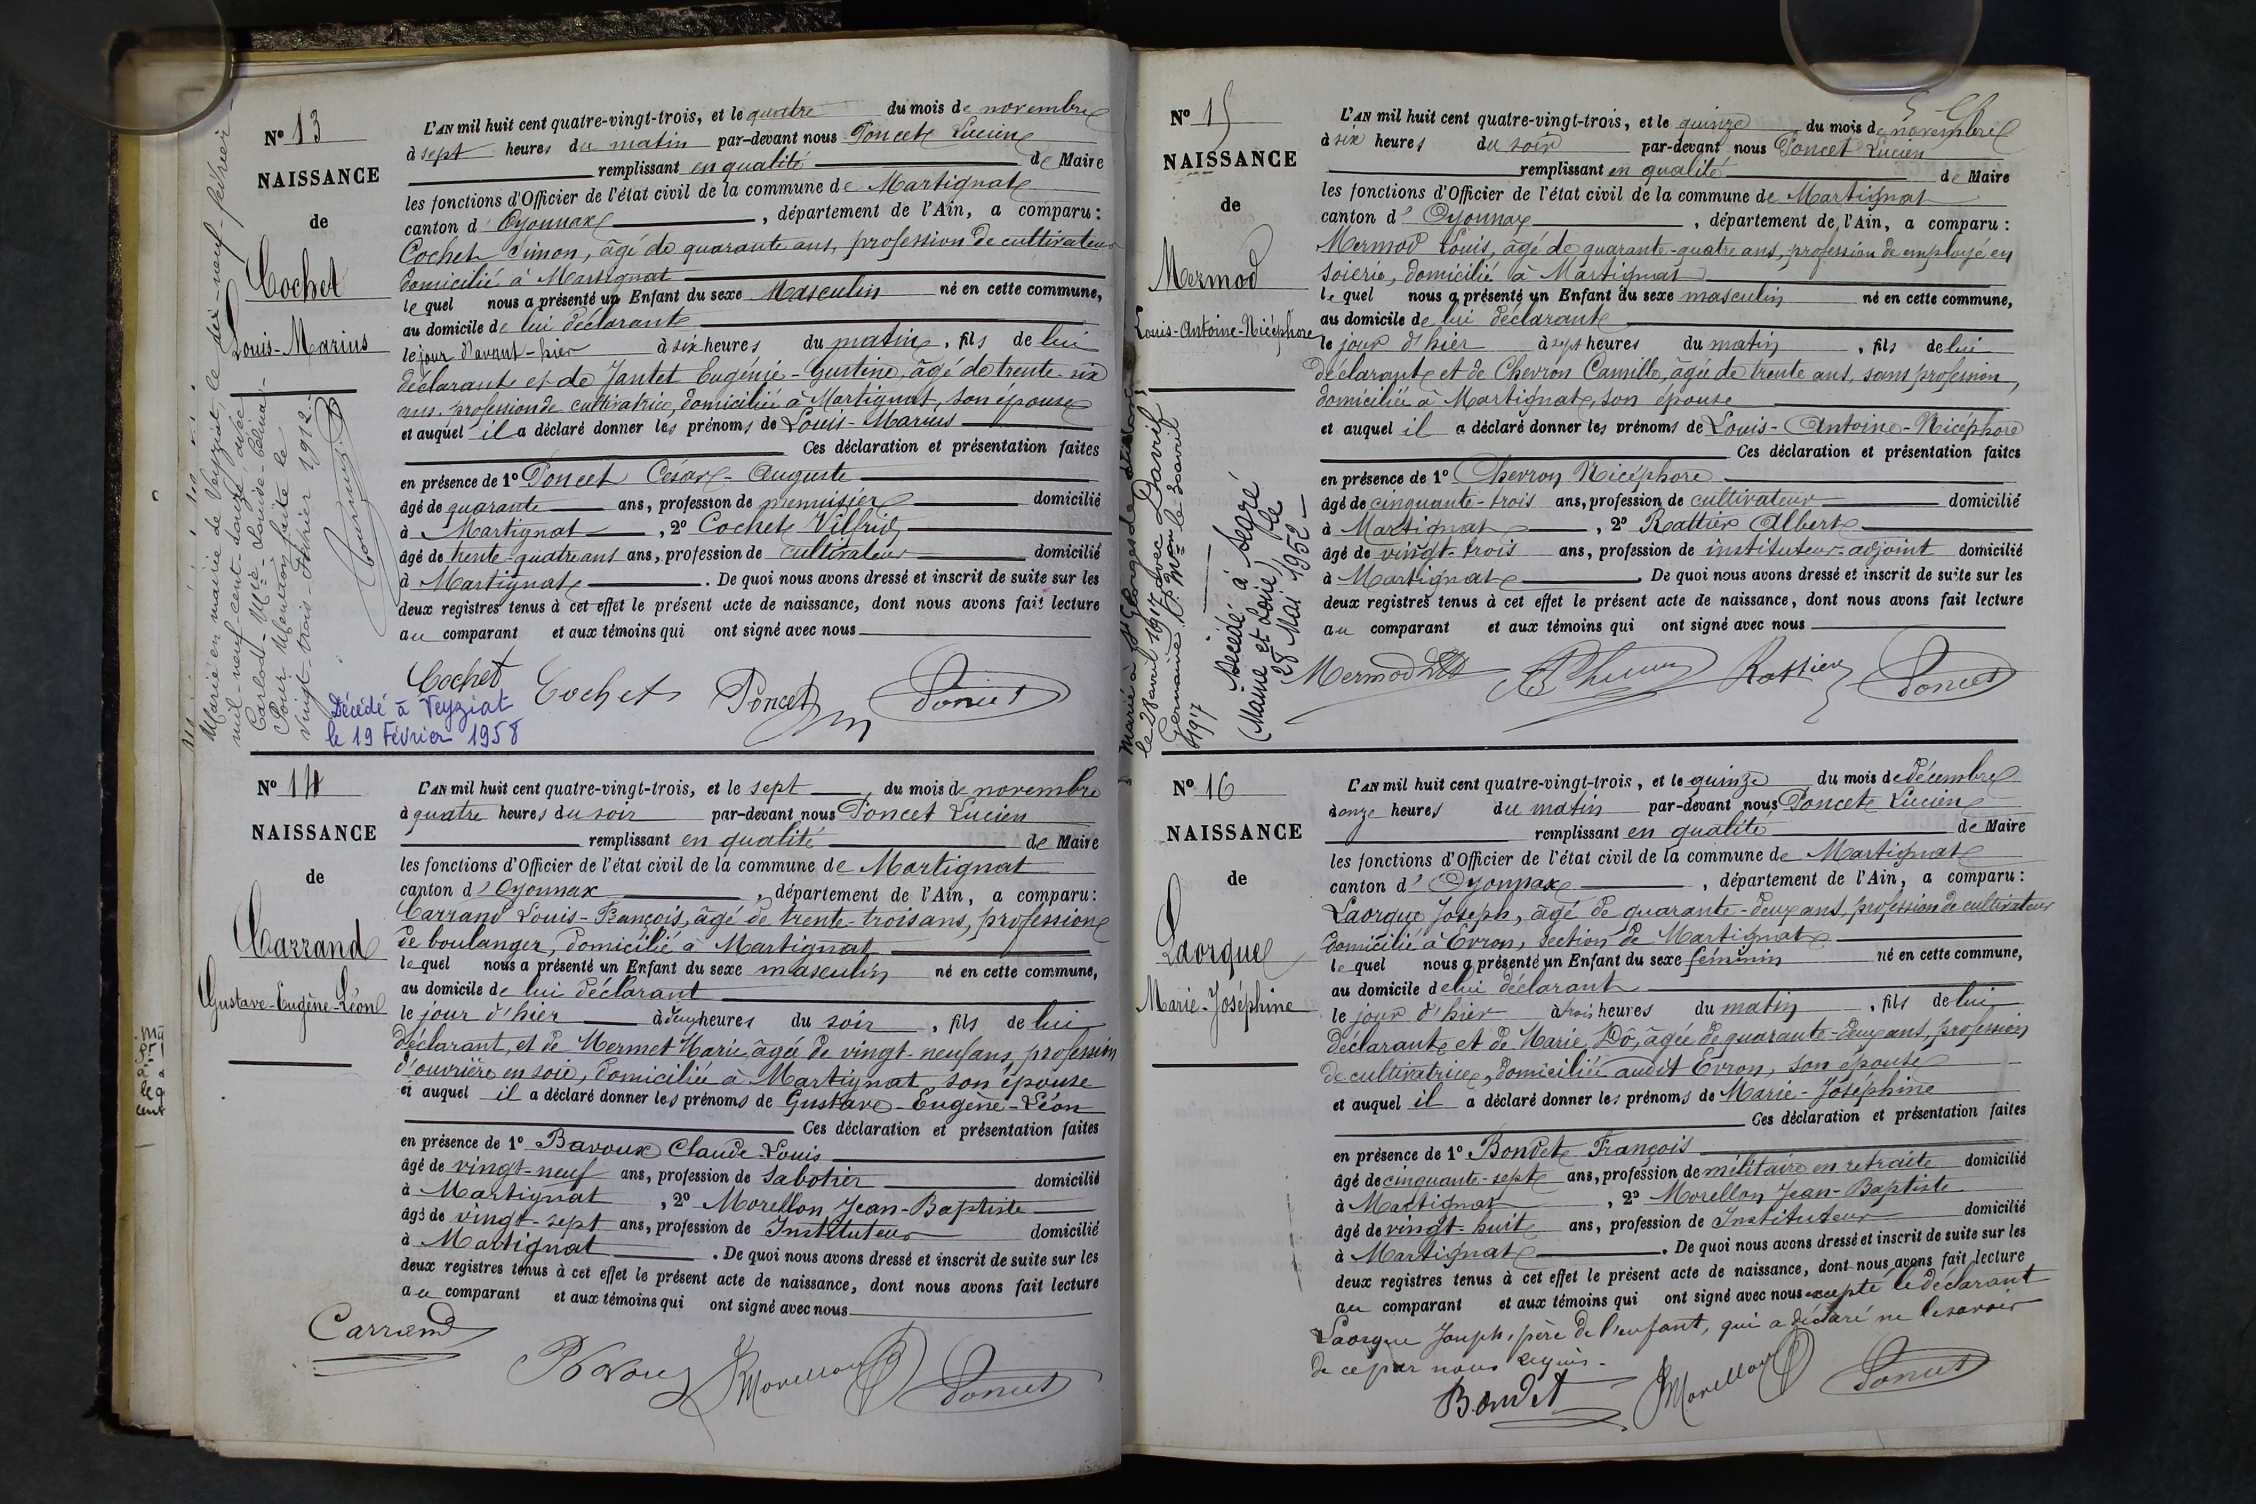 N° 13
NAISSANCE
de
Cochet
Louis-Marius
L'AN mil huit cent quatre-vingt-trois, et le quatre du mois de novembre
à sept heures du matin par-devant nous Poncet Lucien
remplissant en qualité de Maire
les fonctions d'Officier de l'état civil de la commune de Martignat
canton d'Oyonnax, département de l'Ain, a comparu :
Cochet Simon, âgé de quarante ans, profession de cultivateur
domicilié à Martignat
lequel nous a présenté un Enfant du sexe Masculin né en cette commune,
au domicile de lui déclarant
le jour d'avant-hier à six heures du matin, fils de lui
déclarant et de Jantet Eugénie-Justine, âgé de trente-six
ans, profession de cultivatrice, domiciliée à Martignat, son épouse
et auquel il a déclaré donner les prénoms de Louis-Marius
Ces déclaration et présentation faites
en présence de 1° Poncet César-Auguste
âgé de quarante ans, profession de menuisier domicilié
à Martignat, 2° Cochet Wilfrid
âgé de trente-quatre ans ans, profession de cultivateur domicilié
à Martignat. De quoi nous avons dressé et inscrit de suite sur les
deux registres tenus à cet effet le présent acte de naissance, dont nous avons fait lecture
au comparant et aux témoins qui ont signé avec nous
Cochet Cochet Poncet Poncet
Marié en mairie de Veyziat, le dix-neuf-février-
mil-neuf-cent-douze avec
Carlod- Marie-Louise-
Pour Mention faite le
vingt-trois-février 1912.
Décédé à Veyziat
le 19 Février 1958
N° 14
NAISSANCE
de
Carrand
Gustave-Eugène-Léon
L'AN mil huit cent quatre-vingt-trois, et le sept du mois de novembre
à quatre heures du soir par-devant nous Poncet Lucien
remplissant en qualité de Maire
les fonctions d'Officier de l'état civil de la commune de Martignat
canton d'Oyonnax, département de l'Ain, a comparu :
Carrand Louis-François, âgé de trente-trois ans, profession
de boulanger, domicilié à Martignat
lequel nous a présenté un Enfant du sexe masculin né en cette commune,
au domicile de lui déclarant
le jour d'hier à deux heures du soir, fils de lui
déclarant, et de Mermet Marie âgée de vingt-neuf ans, profession
d'ouvrière en soie, domiciliée à Martignat, son épouse
et auquel il a déclaré donner les prénoms de Gustave-Eugène-Léon
Ces déclaration et présentation faites
en présence de 1° Bavoux Claude-Louis
âgé de vingt-neuf ans, profession de sabotier domicilié
à Martignat, 2° Morellon Jean-Baptiste
âgé de vingt-sept ans, profession de Instituteur domicilié
à Martignat. De quoi nous avons dressé et inscrit de suite sur les
deux registres tenus à cet effet le présent acte de naissance, dont nous avons fait lecture
au comparant et aux témoins qui ont signé avec nous
Carrand Bavoux Morellon Poncet
N° 15
NAISSANCE
de
Mermod
Louis-Antoine-Nicéphore
L'AN mil huit cent quatre-vingt-trois, et le quinze du mois de novembre
à six heures du soir par-devant nous Poncet Lucien
remplissant en qualité de Maire
les fonctions d'Officier de l'état civil de la commune de Martignat
canton d'Oyonnax, département de l'Ain, a comparu :
Mermod Louis, âgé de quarante-quatre ans, profession de employé en
soierie, domicilié à Martignat
lequel nous a présenté un Enfant du sexe masculin né en cette commune,
au domicile de lui déclarant
le jour d'hier à sept heures du matin, fils de lui
déclarant et de Chevron Camille, âgée de trente ans, sans profession,
domiciliée à Martignat, son épouse
et auquel il a déclaré donner les prénoms de Louis-Antoine-Nicéphore
Ces déclaration et présentation faites
en présence de 1° Chevron Nicéphore
âgé de cinquante-trois ans, profession de cultivateur domicilié
à Martignat, 2° Rattier Albert
âgé de vingt-trois ans, profession de instituteur-adjoint domicilié
à Martignat. De quoi nous avons dressé et inscrit de suite sur les
deux registres tenus à cet effet le présent acte de naissance, dont nous avons fait lecture
au comparant et aux témoins qui ont signé avec nous
Mermod Rattier Poncet
Marié à St Georges de
le 28 avril 1917 avec
Germaine le
1917
Décédé à Segré
(Maine et Loire) le
28 Mai 1952-
N° 16
NAISSANCE
de
Laorque
Marie-Joséphine
L'AN mil huit cent quatre-vingt-trois, et le quinze du mois de décembre
à onze heures du matin par-devant nous Poncet Lucien
remplissant en qualité de Maire
les fonctions d'Officier de l'état civil de la commune de Martignat
canton d'Oyonnax, département de l'Ain, a comparu :
Laorque Joseph, âgé de quarante-deux ans, profession de cultivateur
domicilié à Evron, section de Martignat
lequel nous a présenté un Enfant du sexe féminin né en cette commune,
au domicile de lui déclarant
le jour d'hier à trois heures du matin, fils de lui
déclarant et de Marie Dô, âgée de quarante-deux ans, profession
de cultivatrice, domiciliée audit Evron, son épouse
et auquel il a déclaré donner les prénoms de Marie-Joséphine
Ces déclaration et présentation faites
en présence de 1° Bondet François
âgé de cinquante-sept ans, profession de militaire en retraite domicilié
à Martignat, 2° Morellon Jean-Baptiste
âgé de vingt-huit ans, profession de Instituteur domicilié
à Martignat. De quoi nous avons dressé et inscrit de suite sur les
deux registres tenus à cet effet le présent acte de naissance, dont nous avons fait lecture
au comparant et aux témoins qui ont signé avec nous excepté le déclarant
Laorque Joseph, père de l'enfant, qui a déclaré ne le savoir
de ce par nous requis.
Bondet Morellon Poncet